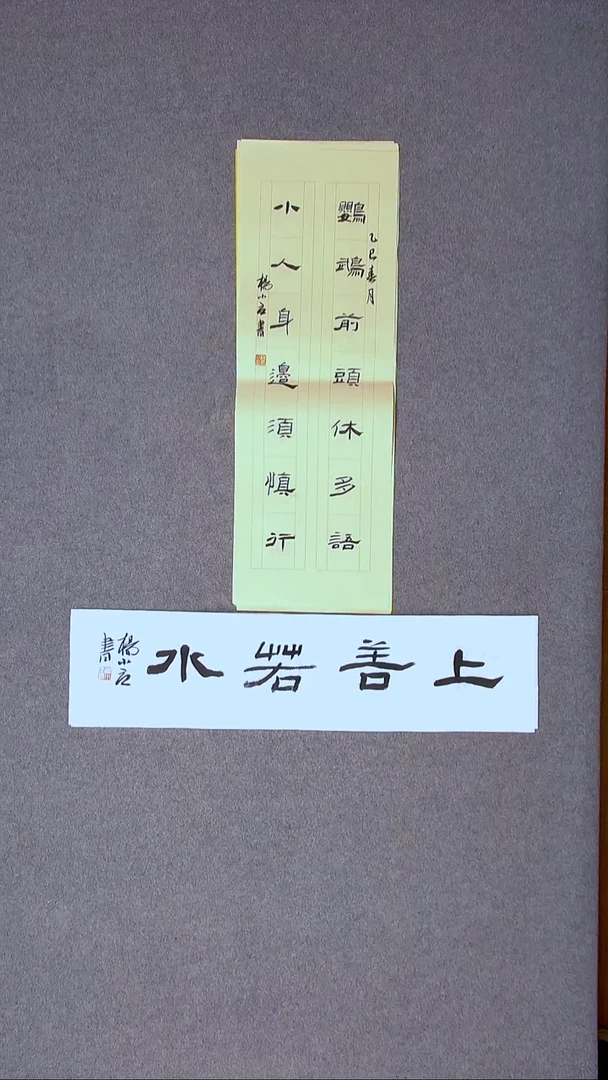 鸚鵡前頭休多語
乙巳春月
小人身邊須慎行
楊小石書
上善若水
楊小石書